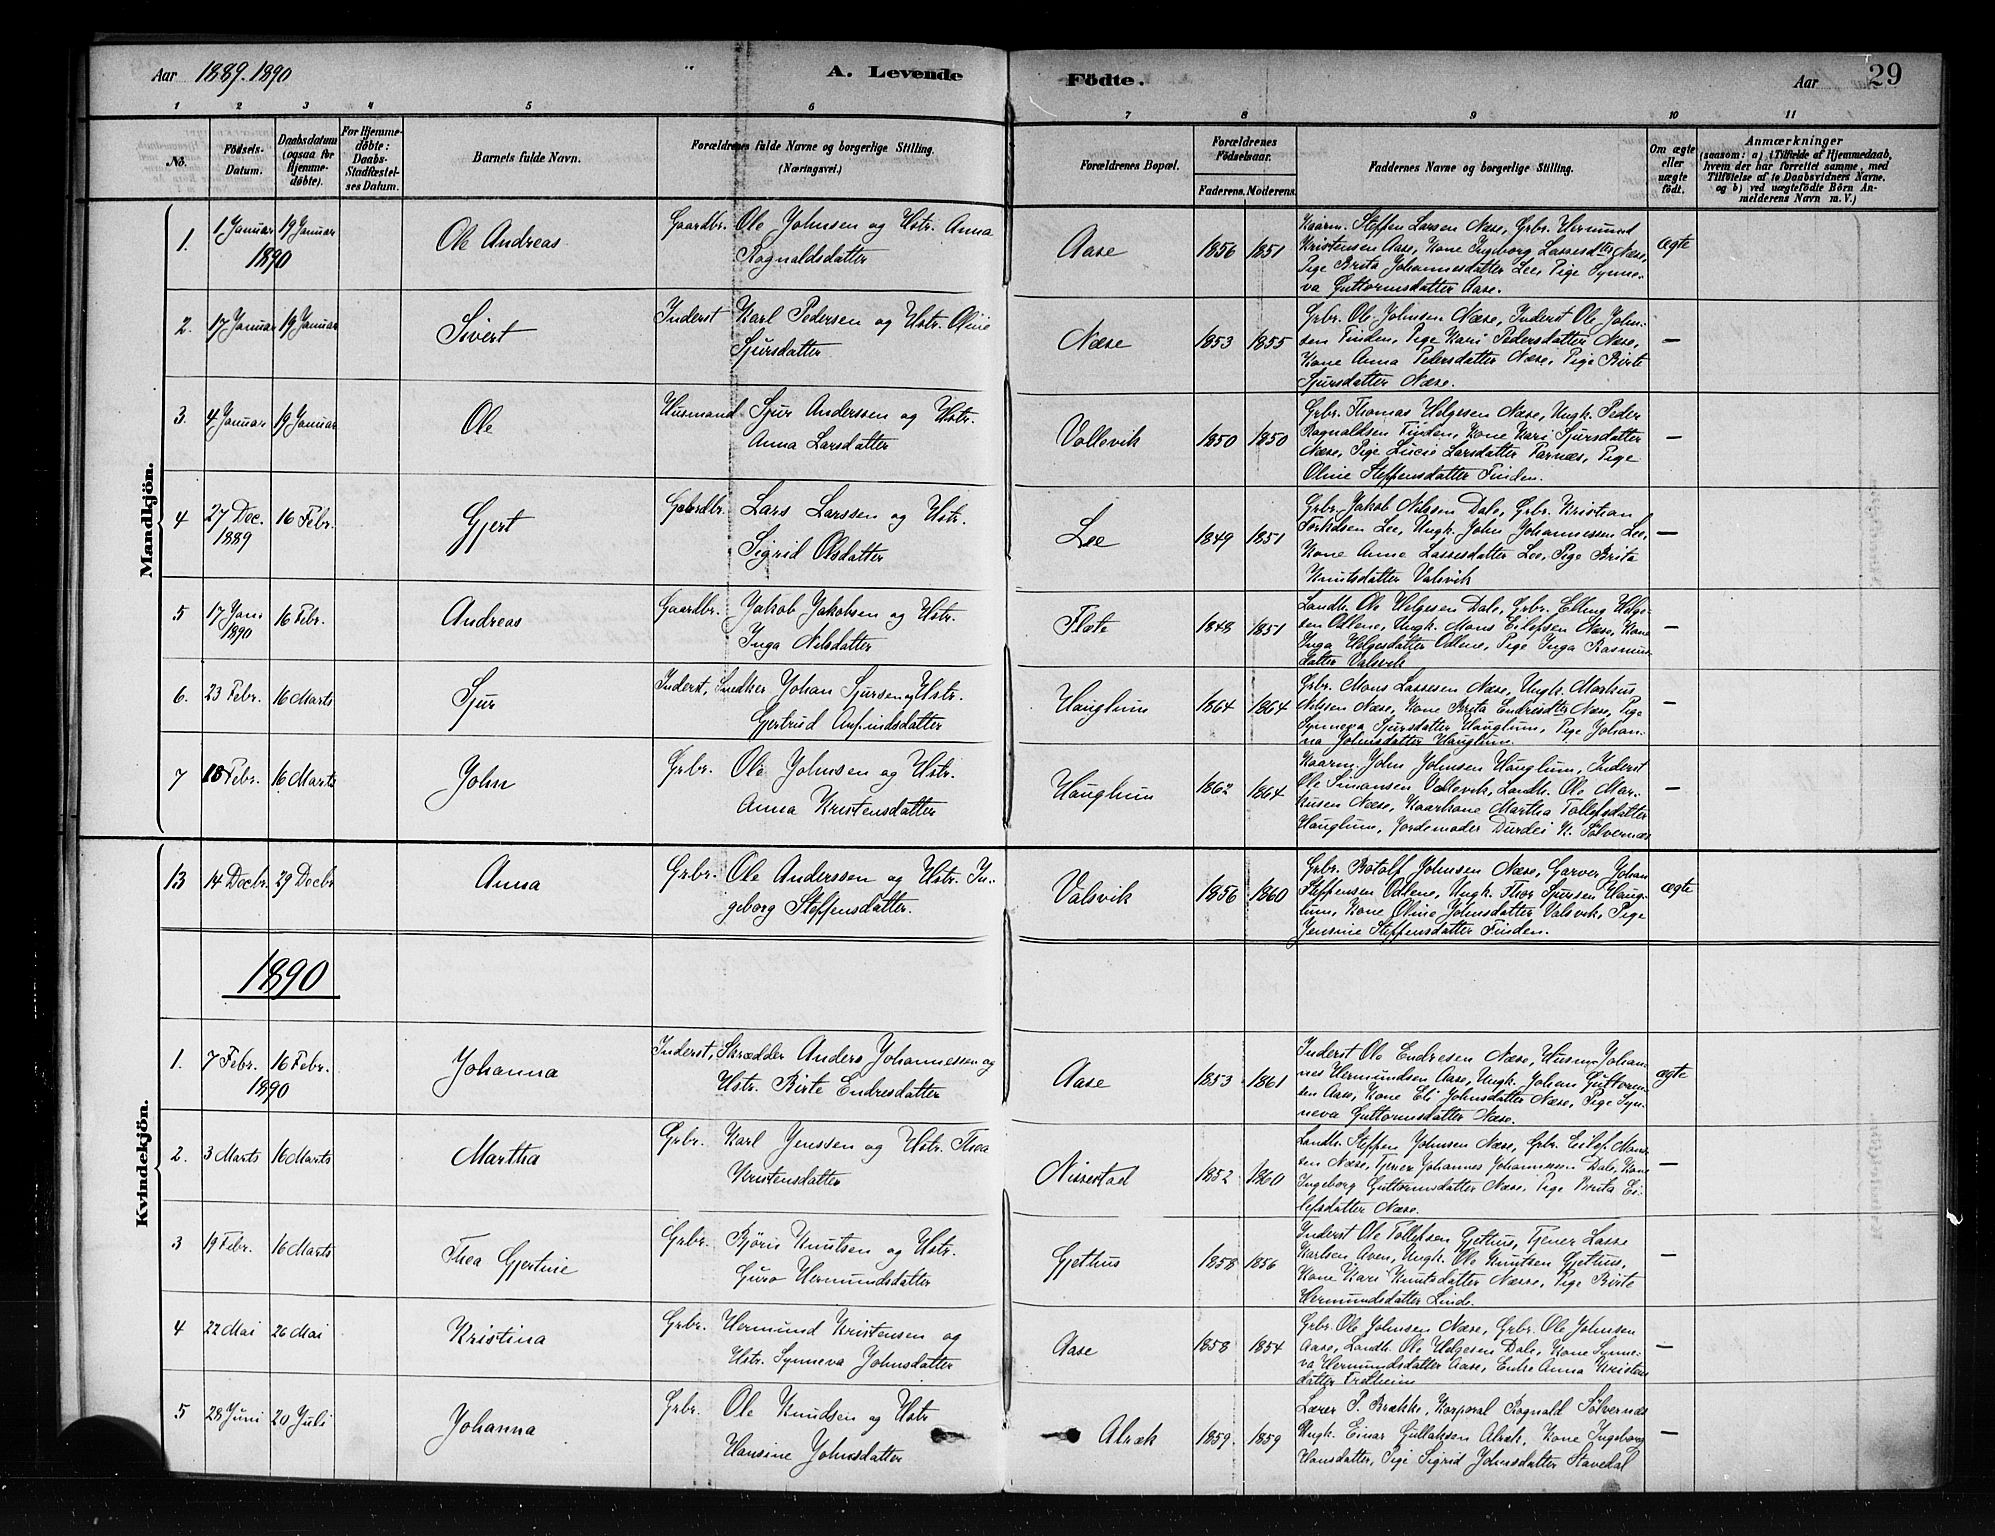 Aar 1889.1890
A. Levende
Födte.
Aar
29
1 2 3 4 5 6 7 8 9 10 11
No.
Födsels-
Datum.
Daabsdatum
(ogsaa for
Hjemme-
döbte).
For Hjemme-
döbte:
Daabs-
Stadfæstel-
ses Datum.
Barnets fulde Navn.
Forældrenes fulde Navne og borgerlige Stilling.
(Næringsvei.)
Forældrenes Bopæl.
Forældrenes
Födselsaar.
Faderens. Moderens.
Faddernes Navne og borgerlige Stilling.
Om ægte
eller
uægte
født.
Anmærkninger
(saasom: a) i Tilfælde af Hjemmedaab,
hvem der har forrettet samme, med
Tilföielse af to Daabsvidners Navne,
og b) ved uægtefödte Börn An-
melderens Navn m. V.)
Mandkjön.
1. 1 Januar 19 Januar
1890
Ole Andreas
Gaardbr. Ole Johnsen og Hstr. Anna
Rognaldsdatter
Aase
1856 1851
Kaarm. Steffen Larsen Næse, Grbr. Hermund
Kristensen Aase, Kone Ingeborg Lassesdtr Næse,
Pige Brita Johannesdatter Lee, Pige Synne-
va Guttormsdatter Aase.
ægte
2. 17 Januar 19 Januar
Sivert
Inderst Karl Pedersen og Hstr. Oline
Sjursdatter
Næse
1853 1855
Grbr. Ole Johnsen Næse, Inderst Ole John-
sen Finden, Pige Kari Pedersdatter Næse,
Kone Anna Pedersdatter Næse, Pige Birte
Sjursdatter Næse.
—
3. 4 Januar 19 Januar
Ole
Husmand Sjur Anderssen og Hstr.
Anna Larsdatter
Vollevik
1850 1850
Grbr. Thomas Helgesen Næse, Ungk. Peder
Rognaldsen Finden, Kone Kari Sjursdatter
Næse, Pige Lucie Larsdatter Farnæs, Pige
Oline Steffensdatter Finden.
—
4 27 Dec. 16 Febr.
1889
Gjert
Gaardbr. Lars Larssen og Hstr.
Sigrid Olsdatter
Lee
1849 1851
Grbr. Jakob Nilssen Dale, Grbr. Kristian
Torkilsen Lee, Ungk. John Johannessen Lee,
Kone Anna Lassesdatter Lee, Pige Brita
Knutsdatter Valsvik
—
5 17 Jan. 16 Febr.
1890
Andreas
Gaardbr. Jakob Jakobsen og Hstr.
Inga Nilsdatter
Flete
1848 1851
Landh. Ole Helgesen Dale, Grbr. Elling Helge-
sen Odlene, Ungk. Mons Eilefsen Næse, Kone
Inga Helgesdatter Odlene, Pige Inga Rasmus-
datter Valsvik
—
6. 23 Febr. 16 Marts
Sjur
Inderst, Snedker Johan Sjursen og Hstr.
Gjertrud Anfindsdatter
Hauglum
1864 1864
Grbr. Mons Lassesen Næse, Ungk. Markus
Nilsen Næse, Kone Brita Endresdtr Næse, Pige
Synneva Sjursdatter Hauglum, Pige Johan-
na Johnsdatter Hauglum.
—
7 18 Febr. 16 Marts
John
Grbr. Ole Johnsen og Hstr.
Anna Kristensdatter
Hauglum
1862 1864
Kaarm. John Johnsen Hauglum, Inderst
Ole Simonsen Vallevik, Landh. Ole Mar-
kusen Næse, Kaarkone Martha Tollefsdatter
Hauglum, Jordemoder Durdei K. Sølvernæs
—
Kvindekjön.
13 14 Decbr. 29 Decbr
Anna
Grbr. Ole Anderssen og Hstr. In-
geborg Steffensdatter.
Valsvik
1856 1860
Grbr. Botolf Johnsen Næse, Garver Johan
Steffensen Odlene, Ungk. Thor Sjurssen Haug-
lum, Kone Oline Johnsdatter Valsvik, Pige
Jensine Steffensdatter Finden.
ægte
1890
1. 7 Febr. 16 Febr.
1890
Johanna
Inderst, Skrædder Anders Johannessen og
Hstr. Birte Endresdatter
Aase
1853 1861
Inderst Ole Endresen Næse, Husm. Johan-
nes Hermundsen Aase, Ungk. Johan Guttorm-
sen Aase, Kone Eli Johnsdatter Næse, Pige Syn-
neva Guttormsdatter Næse.
ægte
2. 3 Marts 16 Marts
Martha
Grbr. Karl Jenssen og Hstr. Thea
Kristensdatter
Nissestad
1852 1860
Landh. Steffen Johnsen Næse, Grbr. Eilef Mons-
sen Næse, Tjener Johannes Johannessen Dale, Kone
Ingeborg Guttormsdatter Næse, Pige Brita Ei-
lefsdatter Næse.
—
3 19 Febr. 16 Marts
Thea Gjertine
Grbr. Bjørn Knutsen og Hstr.
Guro Hermundsdatter
Gjethus
1858 1856
Inderst Ole Tollefsen Gjethus, Tjener Lasse
Karlsen Aven, Ungk. Ole Knutsen Gjethus,
Kone Kari Knutsdatter Næse, Pige Birte
Hermundsdatter Linde.
—
4 22 Mai 26 Mai
Kristina
Grbr. Hermund Kristensen og
Hstr. Synneva Johnsdatter
Aase
1858 1854
Grbr. Ole Johnsen Næse, Grbr. Ole Johnsen
Aase, Landh. Ole Helgesen Dale, Kone Synne-
va Hermundsdatter Aase, Enke Anna Kristens-
datter Fretheim
—
5 28 Juni 20 Juli
Johanna
Grbr. Ole Knudsen og Hstr
Hansine Johnsdatter
Alræk
1859. 1859
Lærer P. Brække, Korporal Rognald Sølvernæs
Ungk. Einar Gullaksen Alræk, Kone Ingeborg
Hansdatter, Pige Sigrid Johnsdatter Stavedal
—